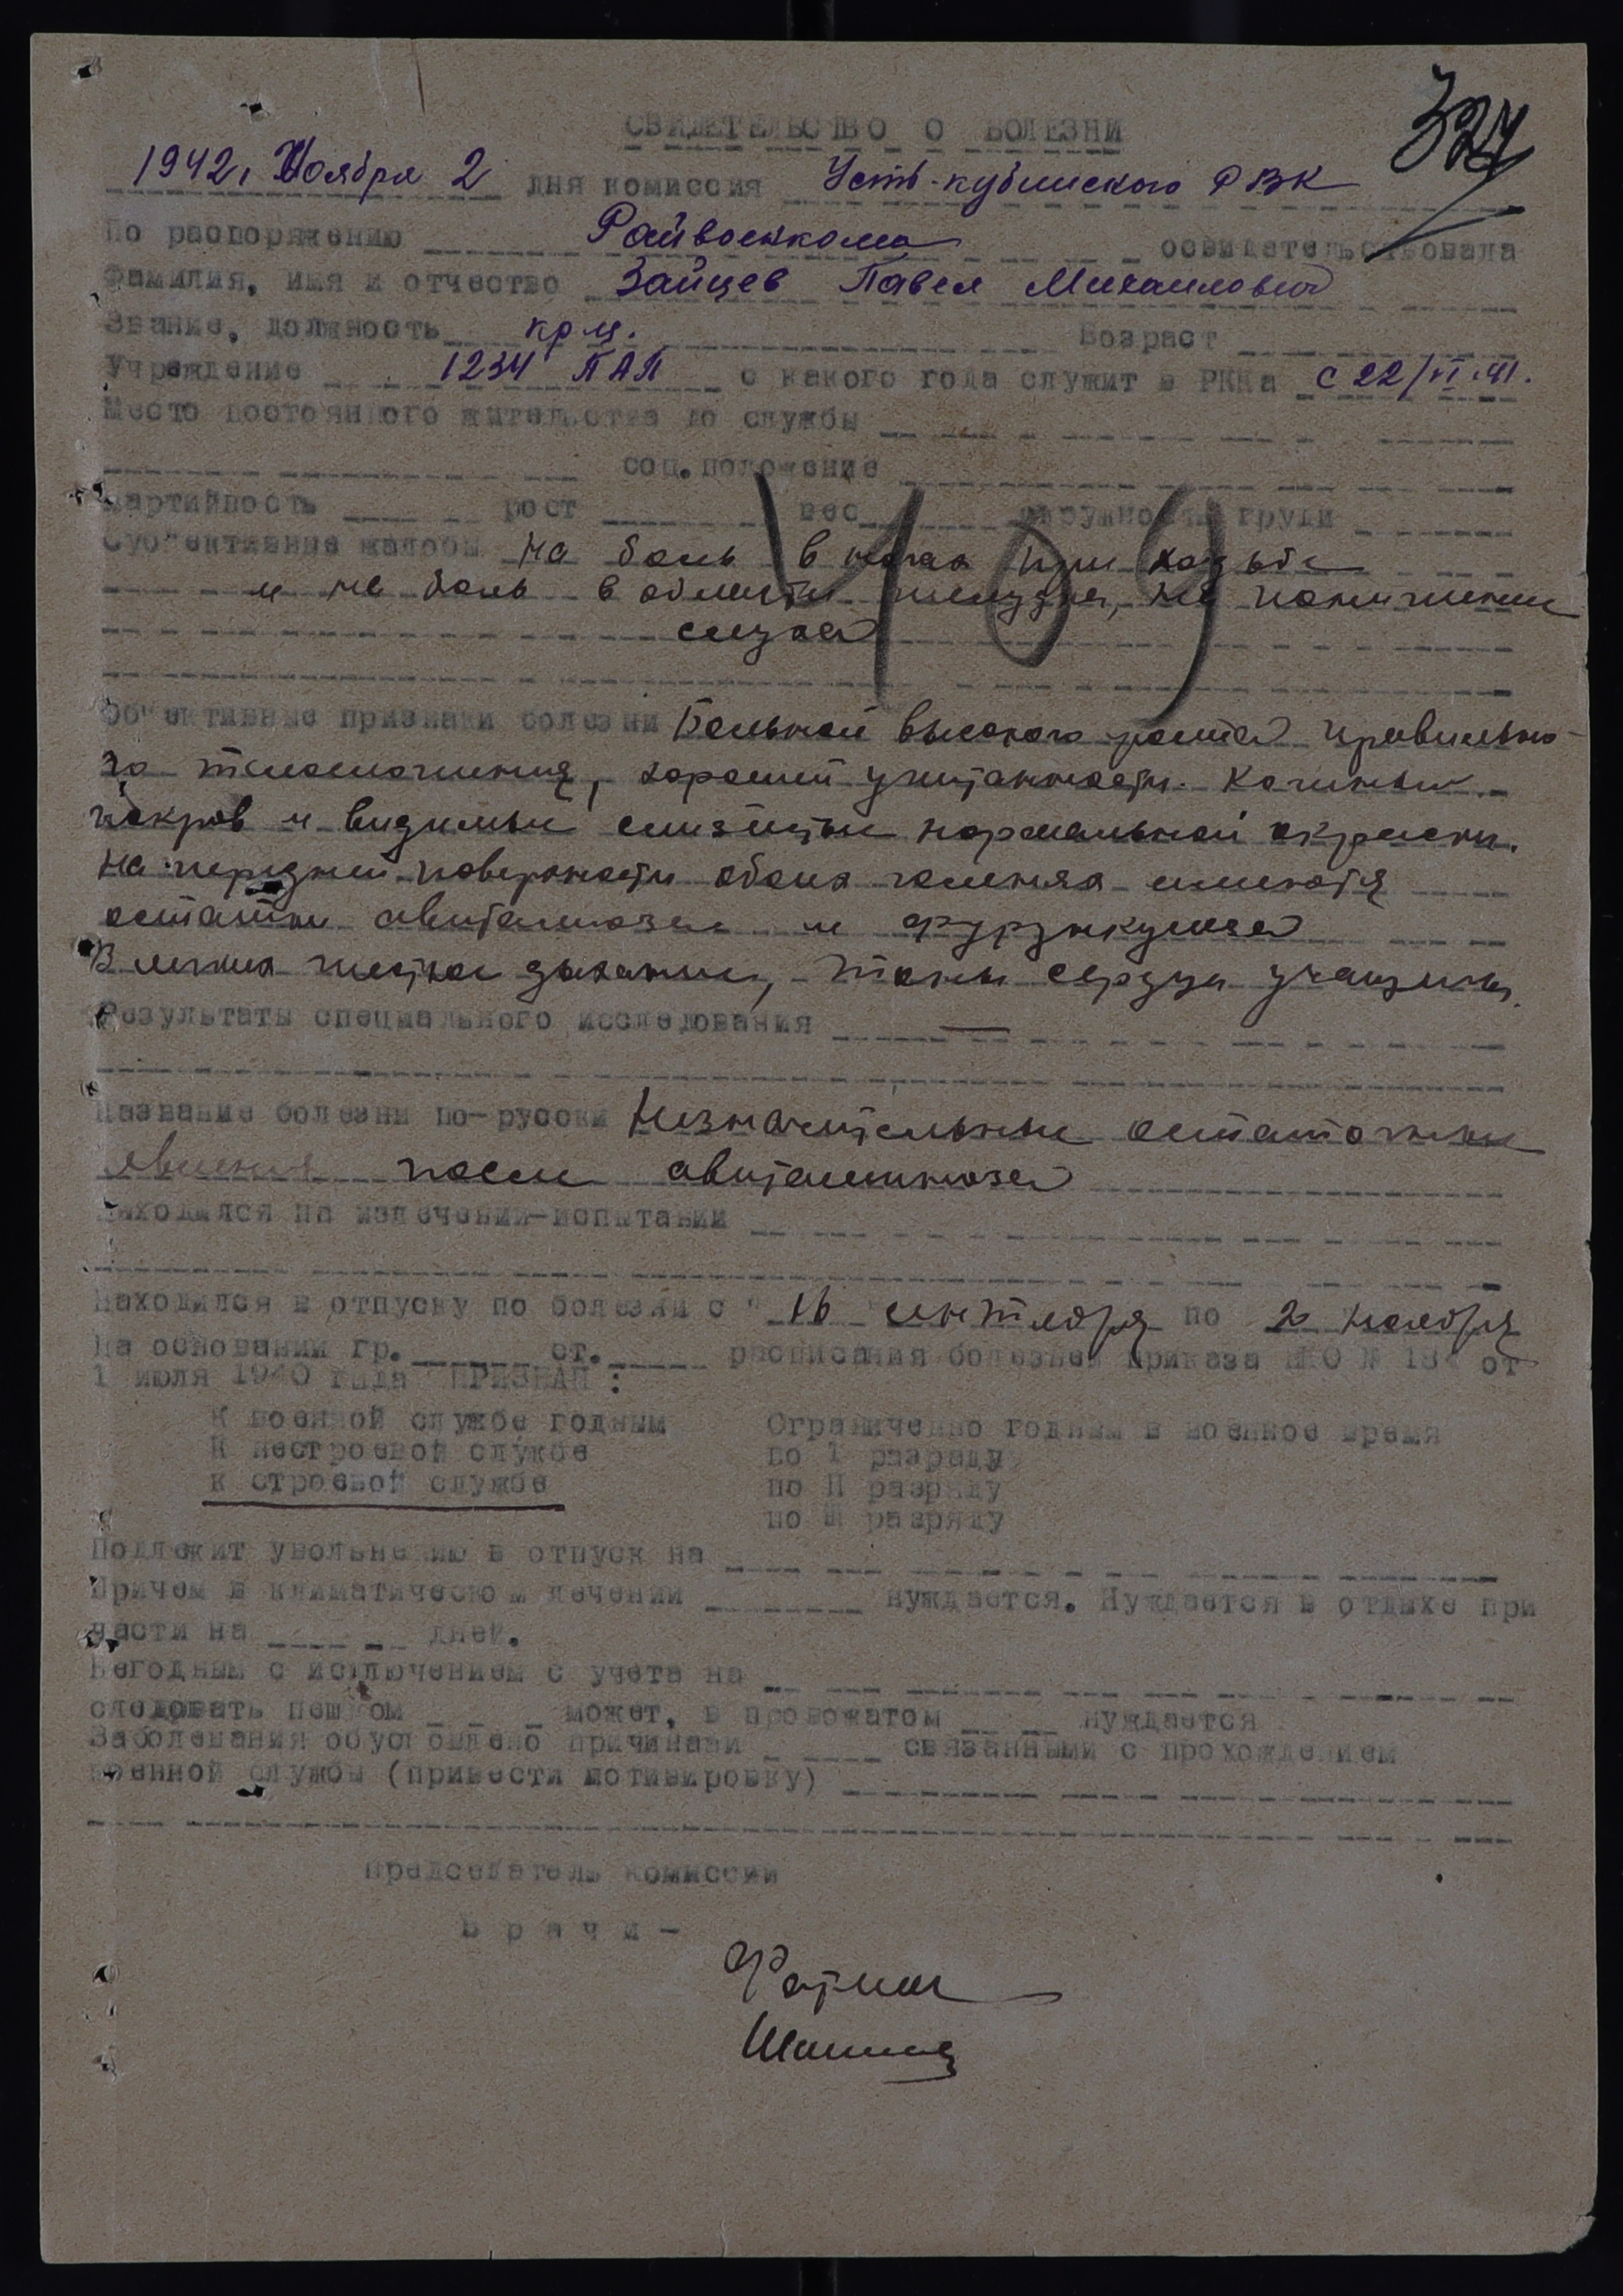 324
СВИДЕТЕЛЬСТВО О БОЛЕЗНИ
1942, Ноября 2 дня комиссия Усть-кубинского РВК
По распоряжению Райвоенкома освидетельствовала
Фамилия, имя и отчество Зайцев Павел Михаилович
Звание, должность кр-ц. Возраст
Учреждение 1234 ПАП с какого года служит в РККА с 22/VI-41.
Место постоянного жительства до службы
соц.положение
Партийность рост вес окружность груди
Суб"ективные жалобы На боль в ногах при ходьбе
и на боль в области желудка, на понижение
слуха
109
Об"ективные признаки болезни Больной высокого роста правильно-
го телосложения, хорошей упитанности. Кожный
покров и видимые слизистые нормальной окраски.
На передней поверхности обоих голенях имеются
остатки авитаминоза и фурункулеза
В легких жесткое дыхание, тоны сердца учащены.
Результаты специального исследования —
Название болезни по-русски Незначительные остаточные
явления после авитаминоза
Находился на излечении-испытании
Находился в отпуску по болезни с " 16 сентября по 2 ноября
На основании гр. ст. расписания болезней приказа НКО № 184 от
1 июля 1940 года ПРИЗНАН:
К военной службе годным Ограниченно годным в военное время
К нестроевой службе по I разряду
к строевой службе по II разряду
по Ш разряду
Подлежит увольнению в отпуск на
Причем в климатическом лечении нуждается. Нуждается в отдыхе при
части на дней.
Негодным с исключением с учета на
следовать пешком может, в провожатом нуждается
Заболевания обусловлено причинами связанными с прохождением
военной службы (привести мотивировку)
Председатель комиссии
Врачи-